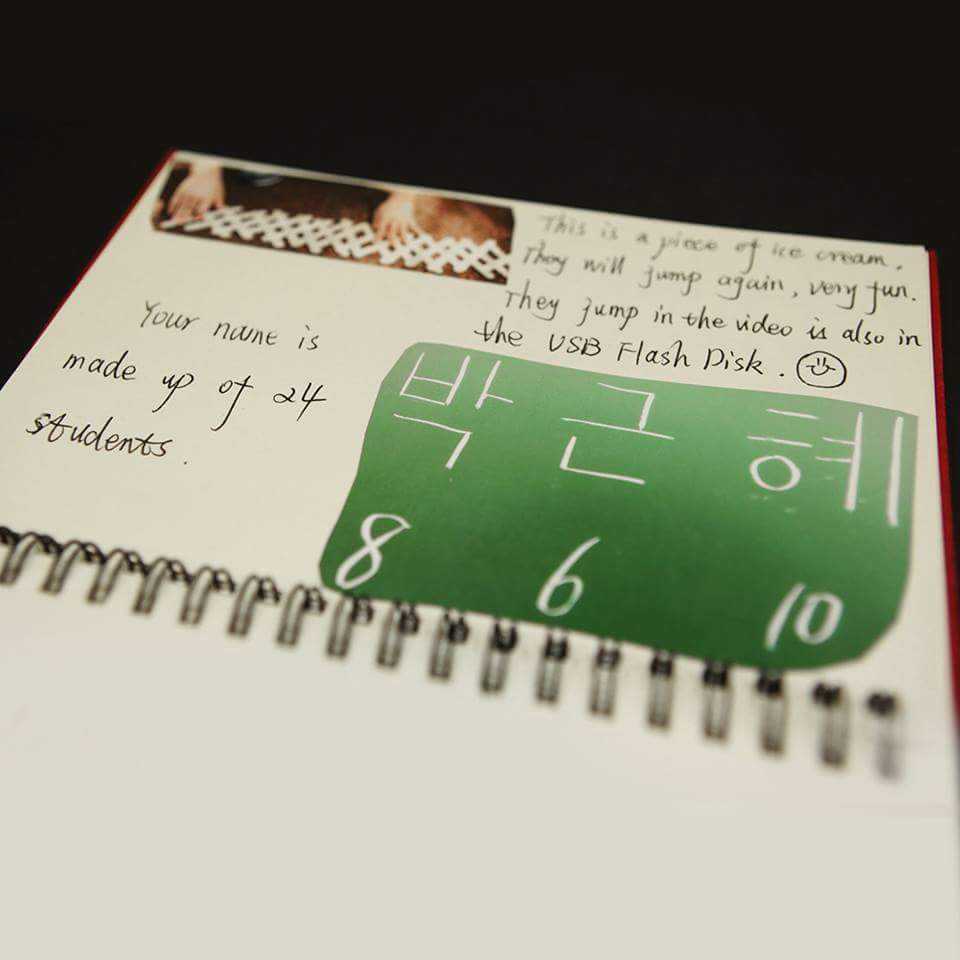 This is a piece of ice cream.
They will jump again, very fun.
They jump in the video is also in
the USB Flash Disk.
Your name is
made up of 24
students.
박 근 혜
8 6 10